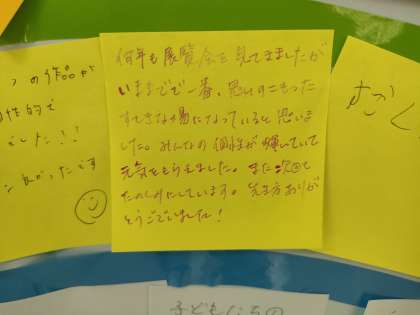 何年も展覧会を見てきましたが
いままでで一番、思いのこもった
すてきな場になっていると思いま
した。みんなの個性が輝いていて
元気をもらえました。また次回も
たのしみにしています。先生方ありが
とうございました!
つの作品が
個性的で
でした!!
良かったです
すごく
子どもたちの